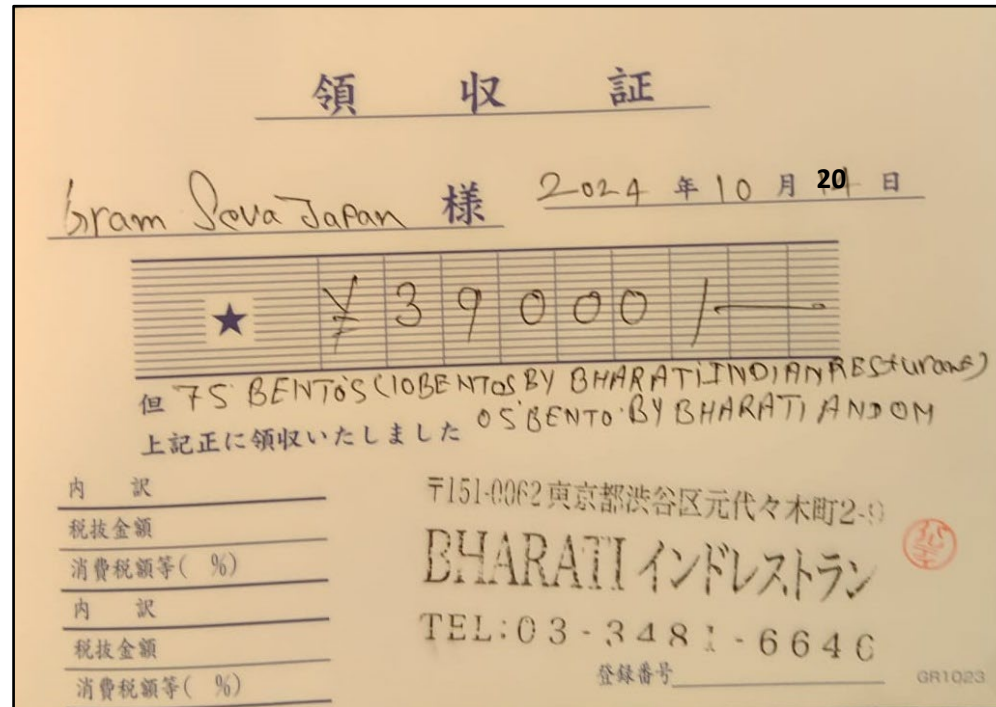 領 収 証
Gram Seva Japan 様 2024 年 10 月 20 日
★ ¥39000/-
但 75 BENTO'S (10 BENTOS BY BHARATI INDIAN RESturant)
05 BENTO BY BHARATI AND OM
上記正に領収いたしました
内 訳
税抜金額
消費税額等( %)
内 訳
税抜金額
消費税額等( %)
〒151-0062 東京都渋谷区元代々木町2-9
BHARATI インドレストラン
TEL:03-3481-6646
登録番号
GR1023